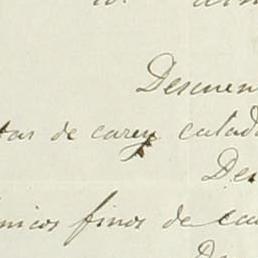 Descuen
tas de carey calad
De
nicos finos de ca
De